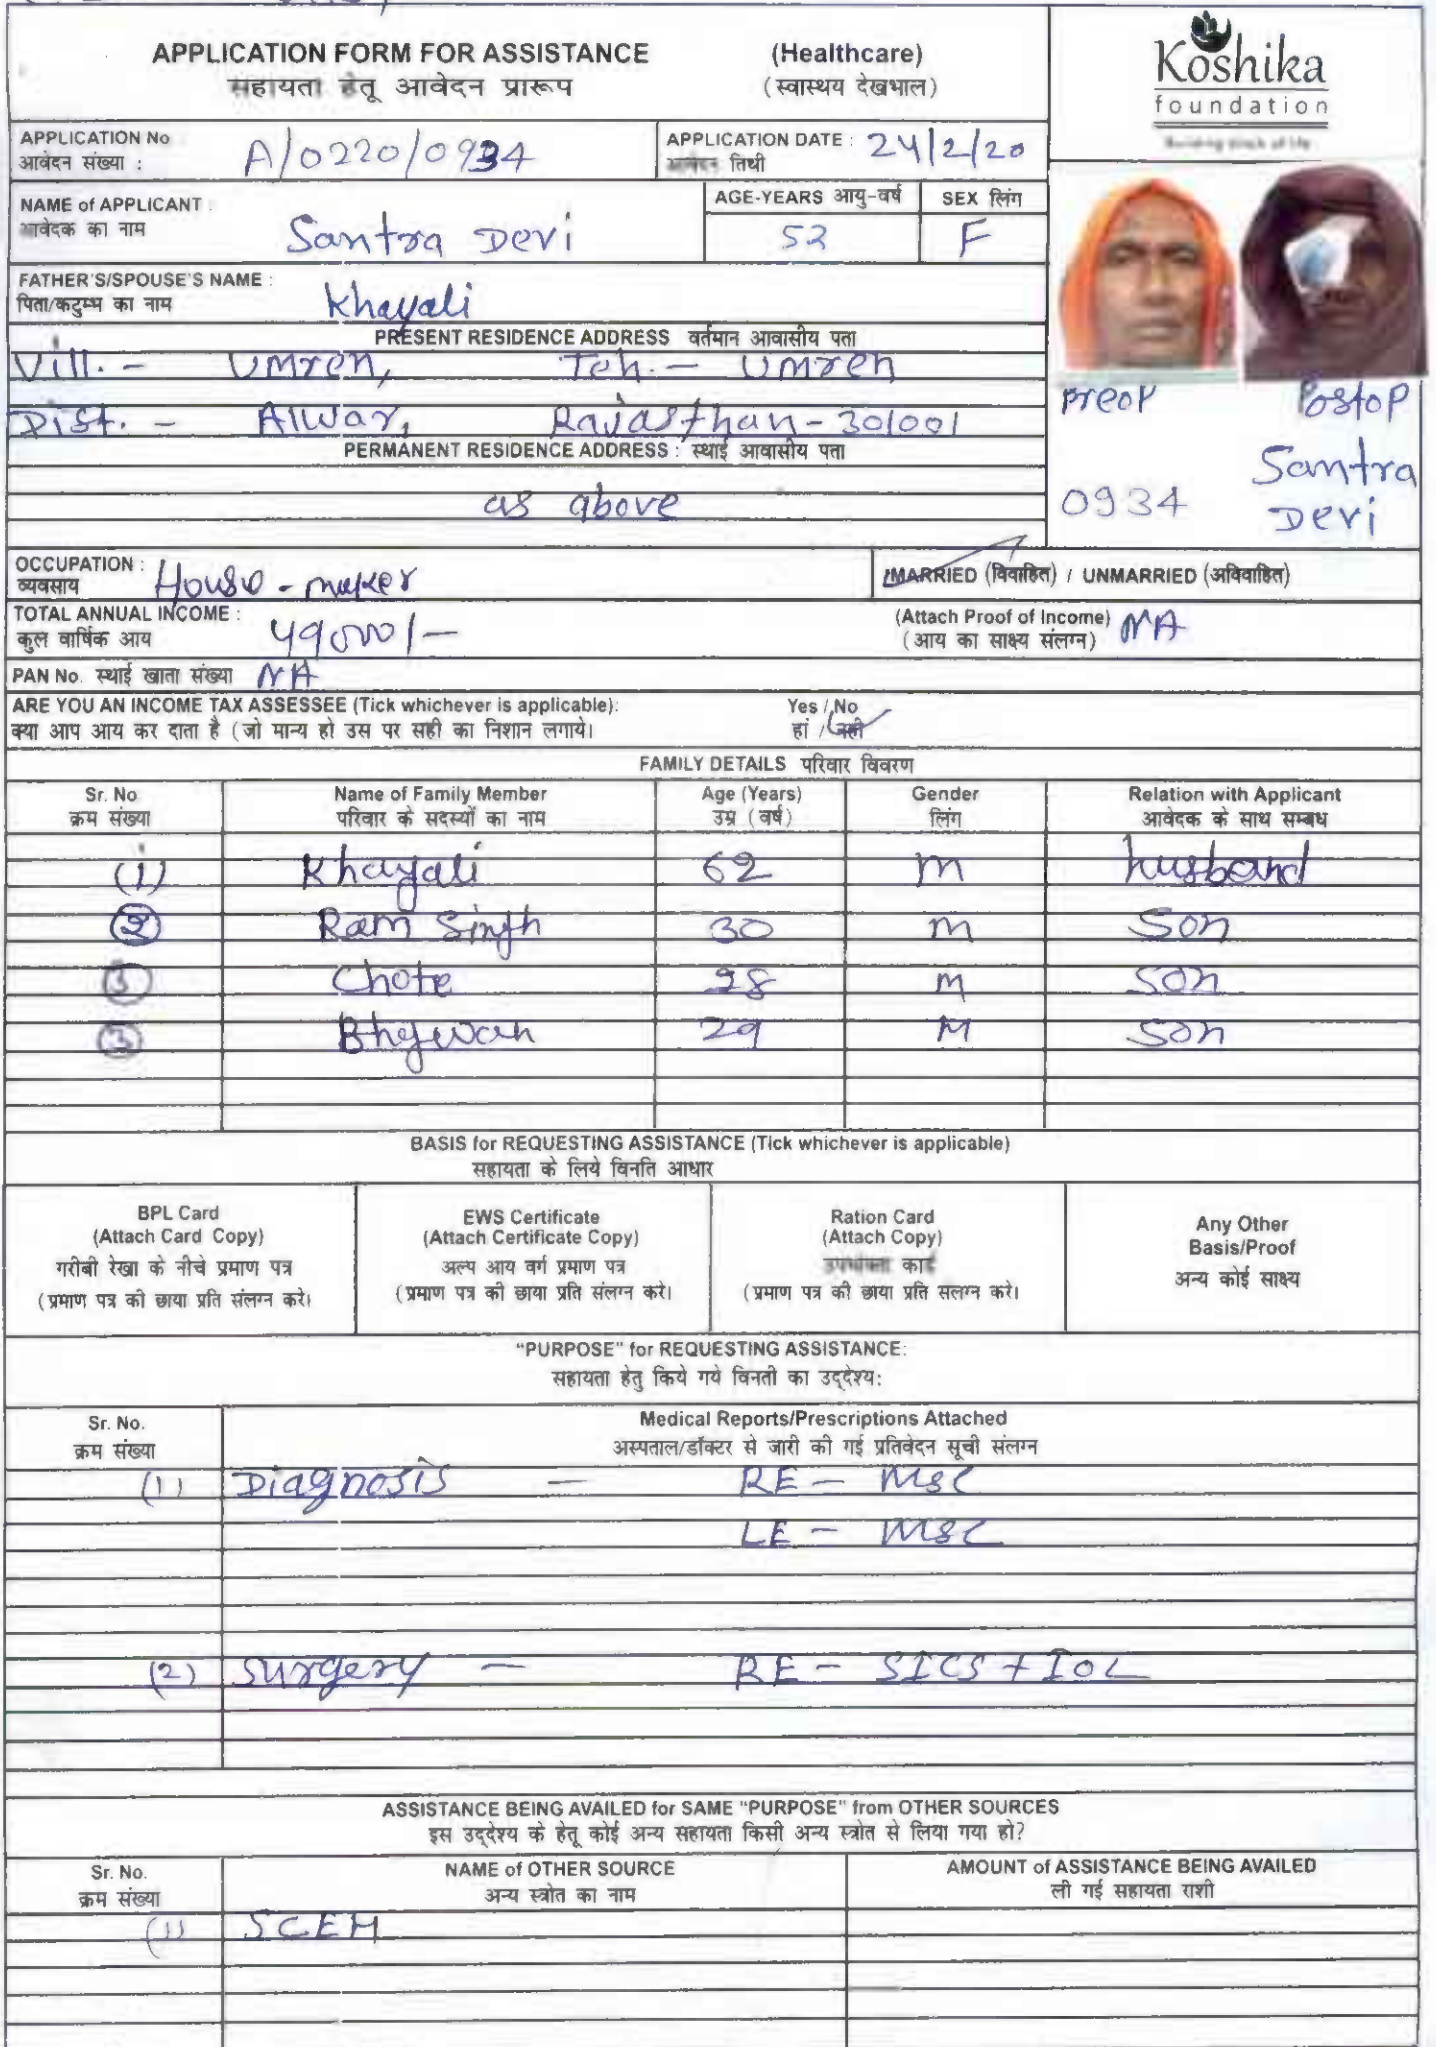 APPLICATION FORM FOR ASSISTANCE (Healthcare)
सहायता हेतू आवेदन प्रारूप (स्वास्थय देखभाल)
Koshika
foundation
APPLICATION No
आवेदन संख्या : A/0220/0934
APPLICATION DATE : 24/2/20
आवेदन तिथी
NAME of APPLICANT :
आवेदक का नाम Santra Devi
AGE-YEARS आयु-वर्ष SEX लिंग
52 F
FATHER'S/SPOUSE'S NAME :
पिता/कटुम्भ का नाम Khayali
PRESENT RESIDENCE ADDRESS वर्तमान आवासीय पता
Vill. - Umren, Teh. - Umren
Dist. - Alwar, Rajasthan - 301001
preop Postop
PERMANENT RESIDENCE ADDRESS : स्थाई आवासीय पता
as above
0934 Santra
Devi
OCCUPATION :
व्यवसाय House - maker
MARRIED (विवाहित) / UNMARRIED (अविवाहित)
TOTAL ANNUAL INCOME :
कुल वार्षिक आय 49000/-
(Attach Proof of Income) NA
(आय का साक्ष्य संलग्न)
PAN No. स्थाई खाता संख्या NA
ARE YOU AN INCOME TAX ASSESSEE (Tick whichever is applicable): Yes / No
क्या आप आय कर दाता है (जो मान्य हो उस पर सही का निशान लगाये। हां / नही
FAMILY DETAILS परिवार विवरण
Sr. No Name of Family Member Age (Years) Gender Relation with Applicant
क्रम संख्या परिवार के सदस्यों का नाम उम्र (वर्ष) लिंग आवेदक के साथ सम्बध
(1) Khayali 62 M husband
2 Ram Singh 30 M Son
3 Chote 28 M Son
3 Bhagwan 29 M Son
BASIS for REQUESTING ASSISTANCE (Tick whichever is applicable)
सहायता के लिये विनति आधार
BPL Card
(Attach Card Copy)
गरीबी रेखा के नीचे प्रमाण पत्र
(प्रमाण पत्र की छाया प्रति संलग्न करे।
EWS Certificate
(Attach Certificate Copy)
अल्प आय वर्ग प्रमाण पत्र
(प्रमाण पत्र की छाया प्रति संलग्न करे।
Ration Card
(Attach Copy)
उपभोक्ता कार्ड
(प्रमाण पत्र की छाया प्रति संलग्न करे।
Any Other
Basis/Proof
अन्य कोई साक्ष्य
"PURPOSE" for REQUESTING ASSISTANCE:
सहायता हेतु किये गये विनती का उद्देश्य:
Sr. No. Medical Reports/Prescriptions Attached
क्रम संख्या अस्पताल/डॉक्टर से जारी की गई प्रतिवेदन सूची संलग्न
(1) Diagnosis - RE - MSC
LE - MSC
(2) Surgery - RE - SICS + IOL
ASSISTANCE BEING AVAILED for SAME "PURPOSE" from OTHER SOURCES
इस उद्देश्य के हेतू कोई अन्य सहायता किसी अन्य स्त्रोत से लिया गया हो?
Sr. No. NAME of OTHER SOURCE AMOUNT of ASSISTANCE BEING AVAILED
क्रम संख्या अन्य स्त्रोत का नाम ली गई सहायता राशी
(1) SCEH